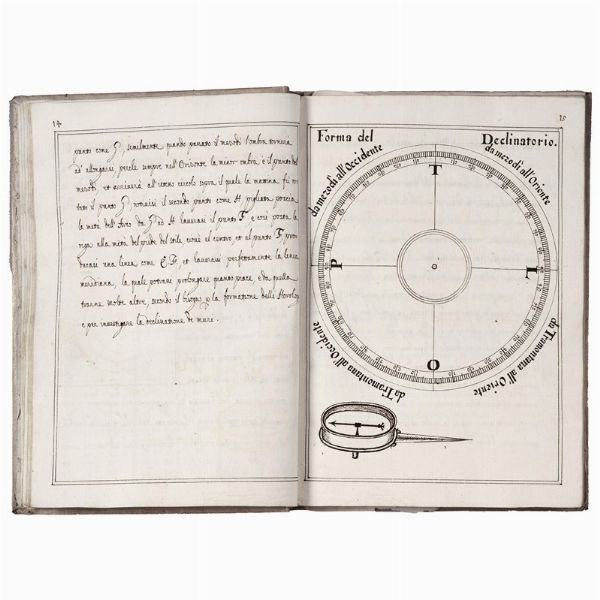 14
punto come P, similmente quando passato il mezodi l'ombra tornerà
ad allongarsi, perche sempre nell'Orizonte la minor ombra, è il punto del
mezodi et arriverà all'istesso circolo sopra il quale la mattina fù no
tato il punto P notarassi il secondo punto come H pigliata poscia
la metà dell'Arco da P ad H haverassi il punto F e così posta la
riga alla metà del piede del stile, cioè al centro, et al punto F pro
ducasi una linea come C F, et haverassi perfettamente la linea
meridiana, la quale potrassi prolongare quanto piace, e da quella
trarne molte altre, secondo il bisogno p la formatione delli Horologi
e per investigare la declinatione de muri.
15
Forma del Declinatorio.
da mezodi all'Occidente
da mezodi all'Oriente
T
P
L
O
da Tramontana all'Occidente
da Tramontana all'Oriente